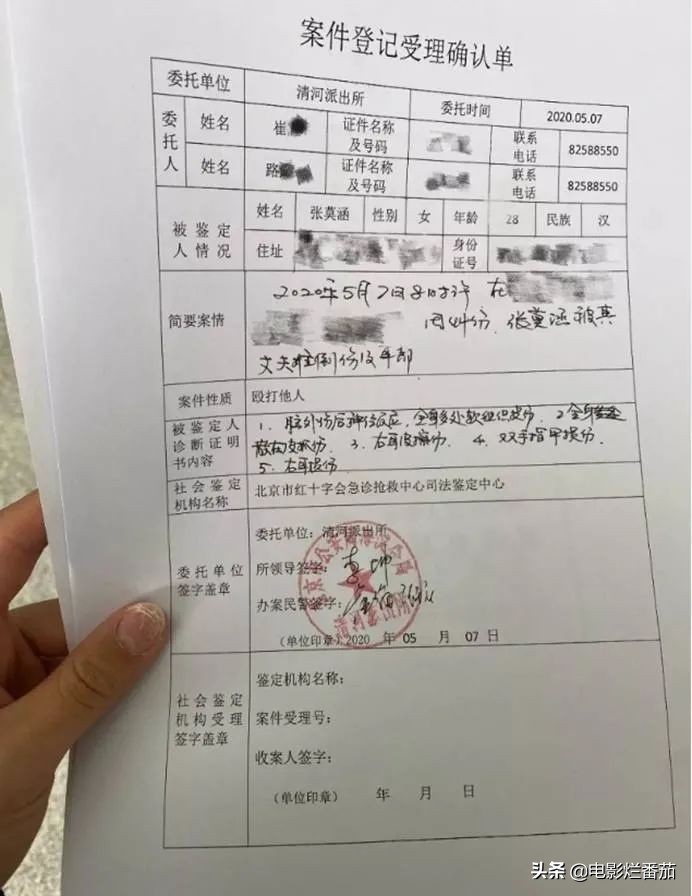 案件登记受理确认单
委托单位 清河派出所 委托时间 2020.05.07
委托人 姓名 崔 证件名称及号码 联系电话 82588550
姓名 路 证件名称及号码 联系电话 82588550
被鉴定人情况 姓名 张莫涵 性别 女 年龄 28 民族 汉
住址 身份证号
简要案情 2020年5月7日8时许 在
因纠纷，张莫涵被其
丈夫推倒伤及耳部
案件性质 殴打他人
被鉴定人诊断证明书内容 1、脑外伤后神经反应，全身多处软组织损伤、2全身
散在皮擦伤、3、右耳皮擦伤、4、双手指甲损伤、
5、右耳损伤
社会鉴定机构名称 北京市红十字会急诊抢救中心司法鉴定中心
委托单位签字盖章 委托单位：清河派出所
所领导签字：
办案民警签字：
（单位印章）2020 年 05 月 07 日
清河派出所
社会鉴定机构受理签字盖章 鉴定机构名称：
案件受理号：
收案人签字：
（单位印章） 年 月 日
头条 @电影烂番茄